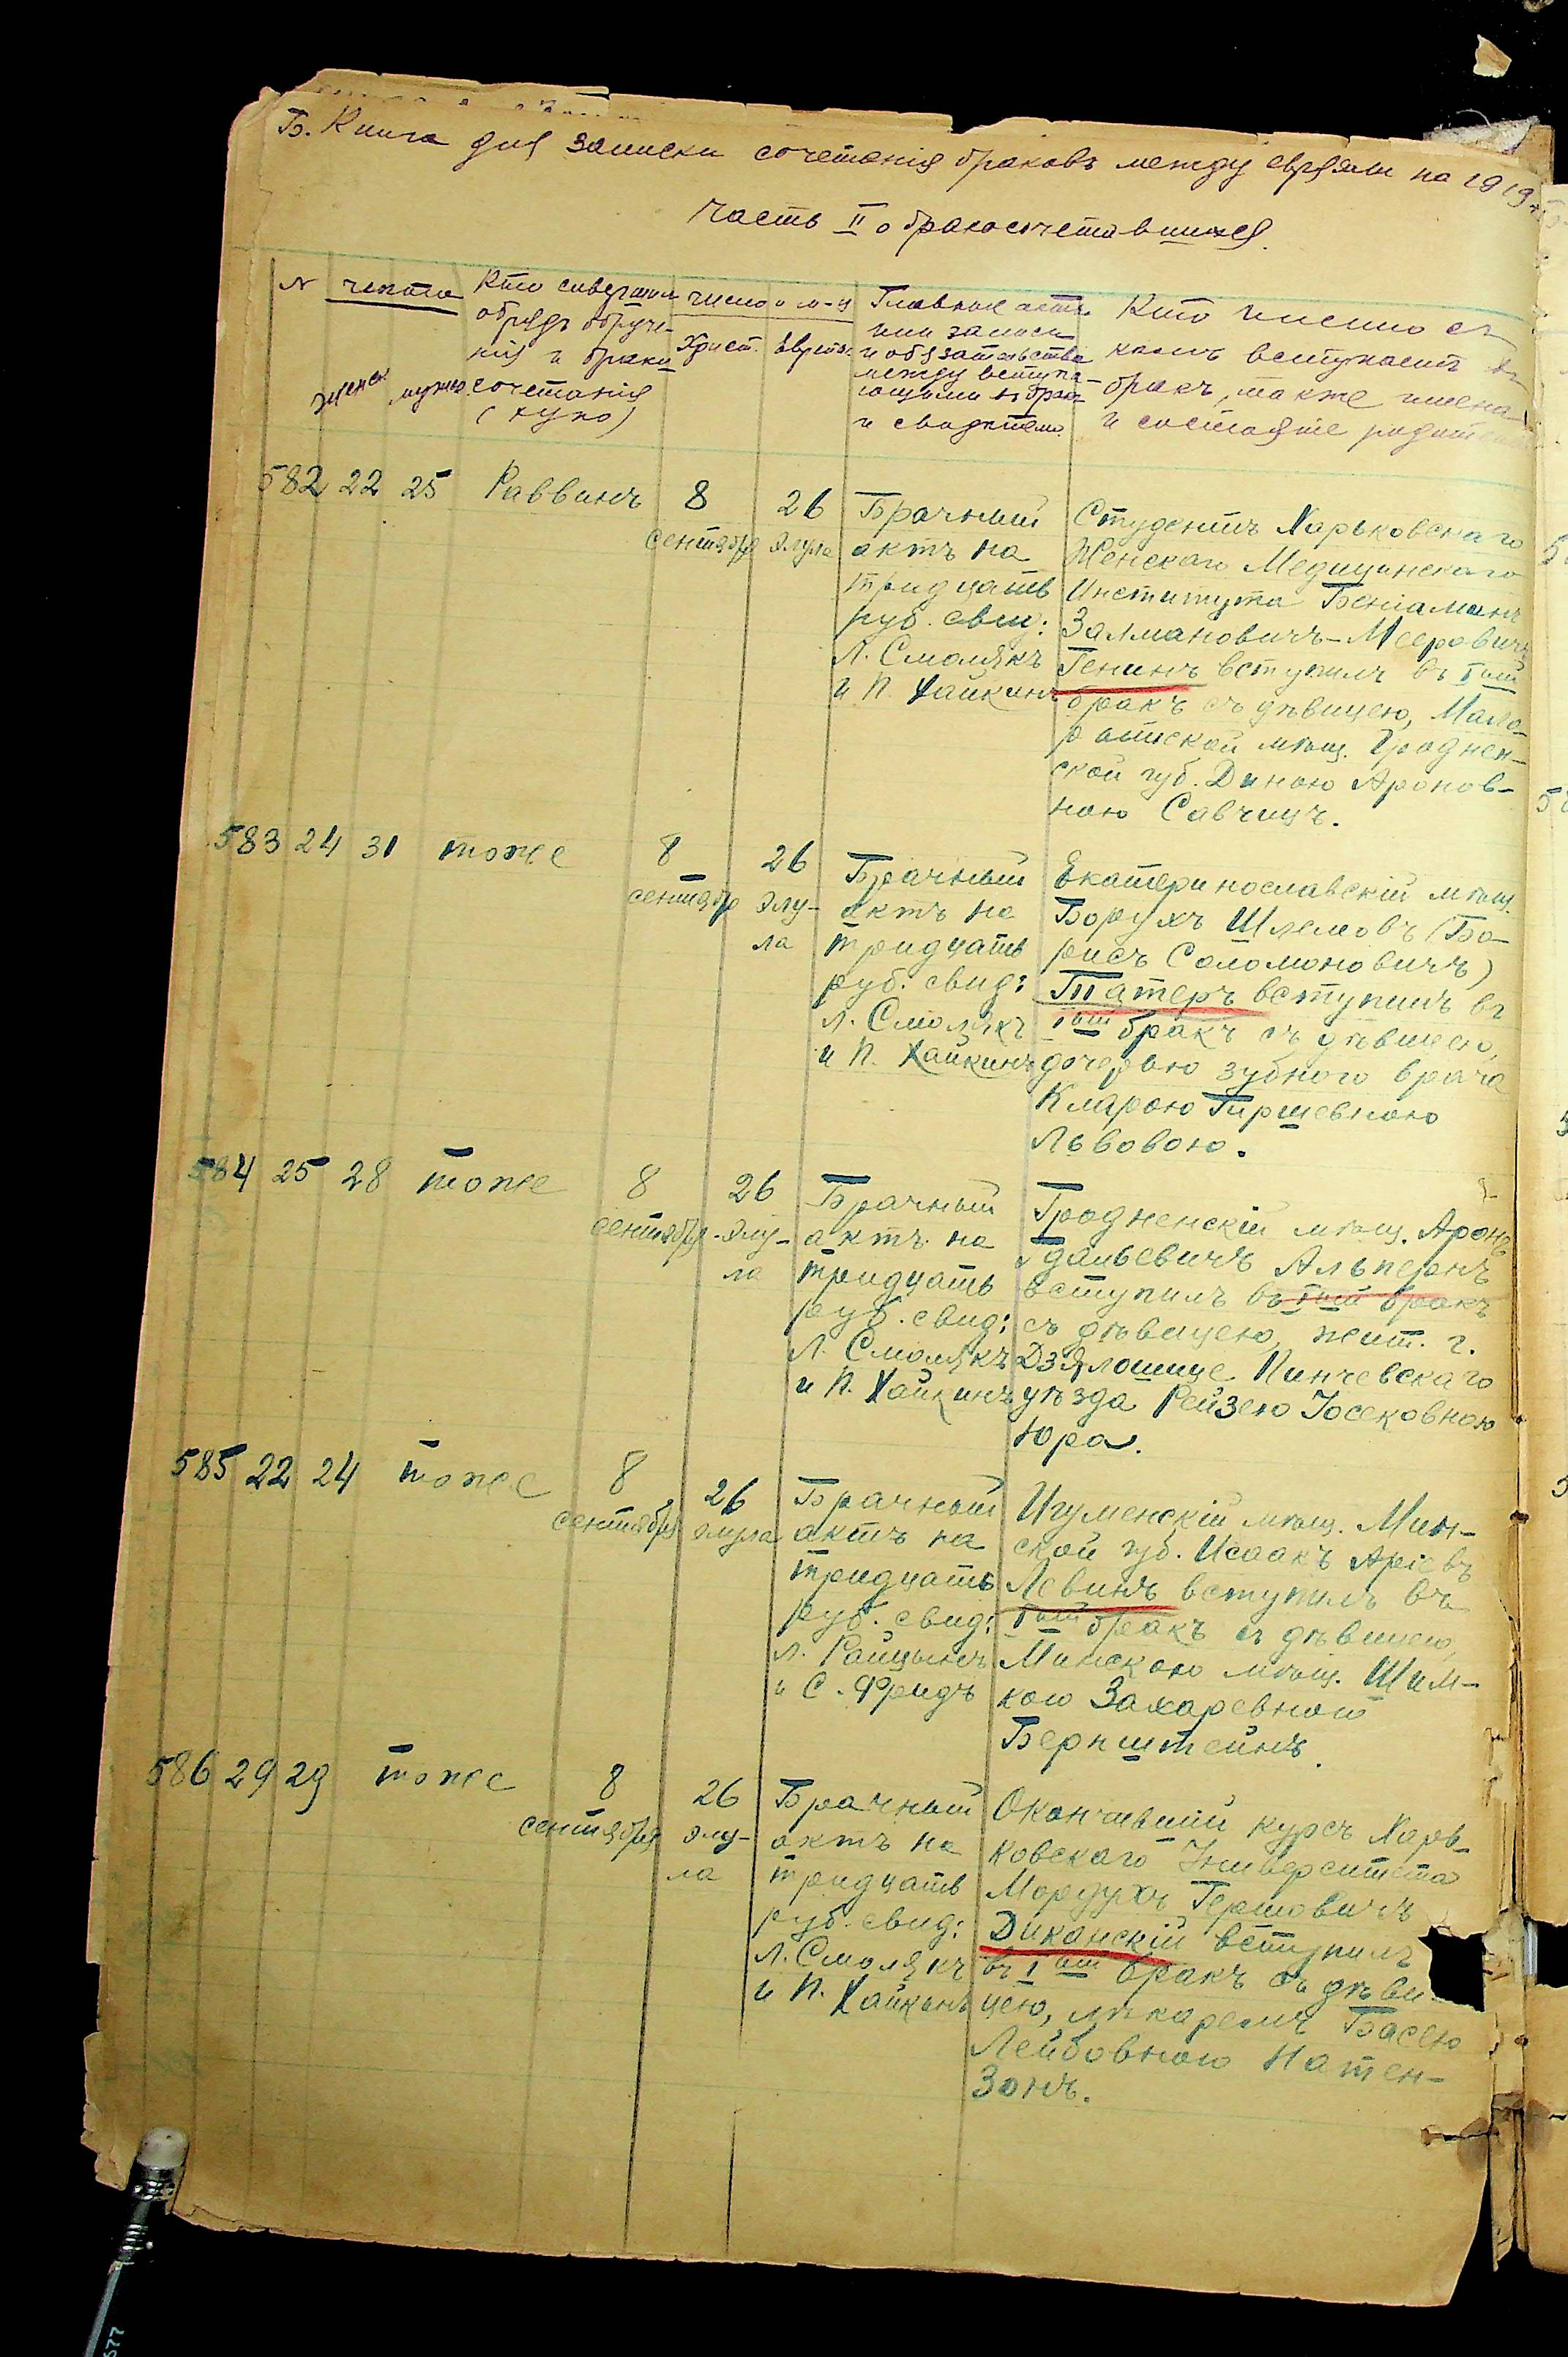 Б. Книга для записки сочетанія браковъ между евреями на 1919
Часть II о бракосочетавшихся.
№
чета
женск
мужс.
Кто совершил
обрядъ обруче-
нія и брако
сочетанія
(хупо)
число и м-ц
Христ. Еврейс.
Главные акты
или записи
и обязательства
между вступа-
ющими въ бракъ
и свидѣтели.
Кто именно съ
кѣмъ вступаетъ въ
бракъ, также имена
и состояніе родителей
582 22 25 Раввинъ
8
сентября
26
элула
Брачный
актъ на
тридцать
руб. свид:
Л. Смолякъ
и П. Хайкинъ
Студентъ Харьковскаго
Женскаго Медицинскаго
Института Беніаминъ
Залмановичъ-Мееровичъ
Генинъ вступилъ въ Iый
бракъ съ дѣвицею, Мало-
ритской мѣщ. Гроднен-
ской губ. Диною Аронов-
ною Савчицъ.
583 24 31 тоже
8
сентября
26
элу-
ла
Брачный
актъ на
тридцать
руб. свид:
Л. Смолякъ
и П. Хайкинъ
Екатеринославскій мѣщ.
Борухъ Шлемовъ (Бо-
рисъ Соломоновичъ)
Татеръ вступилъ въ
Iый бракъ съ дѣвицею,
дочерью зубного врача
Кларою Гиршевною
Львовою.
584 25 28 тоже
8
сентября
26
элу-
ла
Брачный
актъ на
тридцать
руб. свид:
Л. Смолякъ
и П. Хайкинъ
Гродненскій мѣщ. Аронъ
Гдальевичъ Альпернъ
вступилъ въ Iый бракъ
съ дѣвицею, жит. г.
Дзялошице Пинчевскаго
уѣзда Рейзею Іосековною
Юра.
585 22 24 тоже
8
сентября
26
элула
Брачный
актъ на
тридцать
руб. свид:
Л. Райцынъ
и С. Фридъ
Игуменскій мѣщ. Мин-
ской губ. Исаакъ Аріевъ
Левинъ вступилъ въ
Iый бракъ съ дѣвицею,
Минскою мѣщ. Шим-
кою Захаревной
Бернштейнъ.
586 29 29 тоже
8
сентября
26
элу-
ла
Брачный
актъ на
тридцать
руб. свид:
Л. Смолякъ
и П. Хайкинъ
Окончившій курсъ Харь-
ковскаго Университета
Мордухъ Гершовичъ
Диканскій вступилъ
въ Iый бракъ съ дѣви-
цею, лѣкаремъ Басею
Лейбовною Натен-
Зонъ.
577